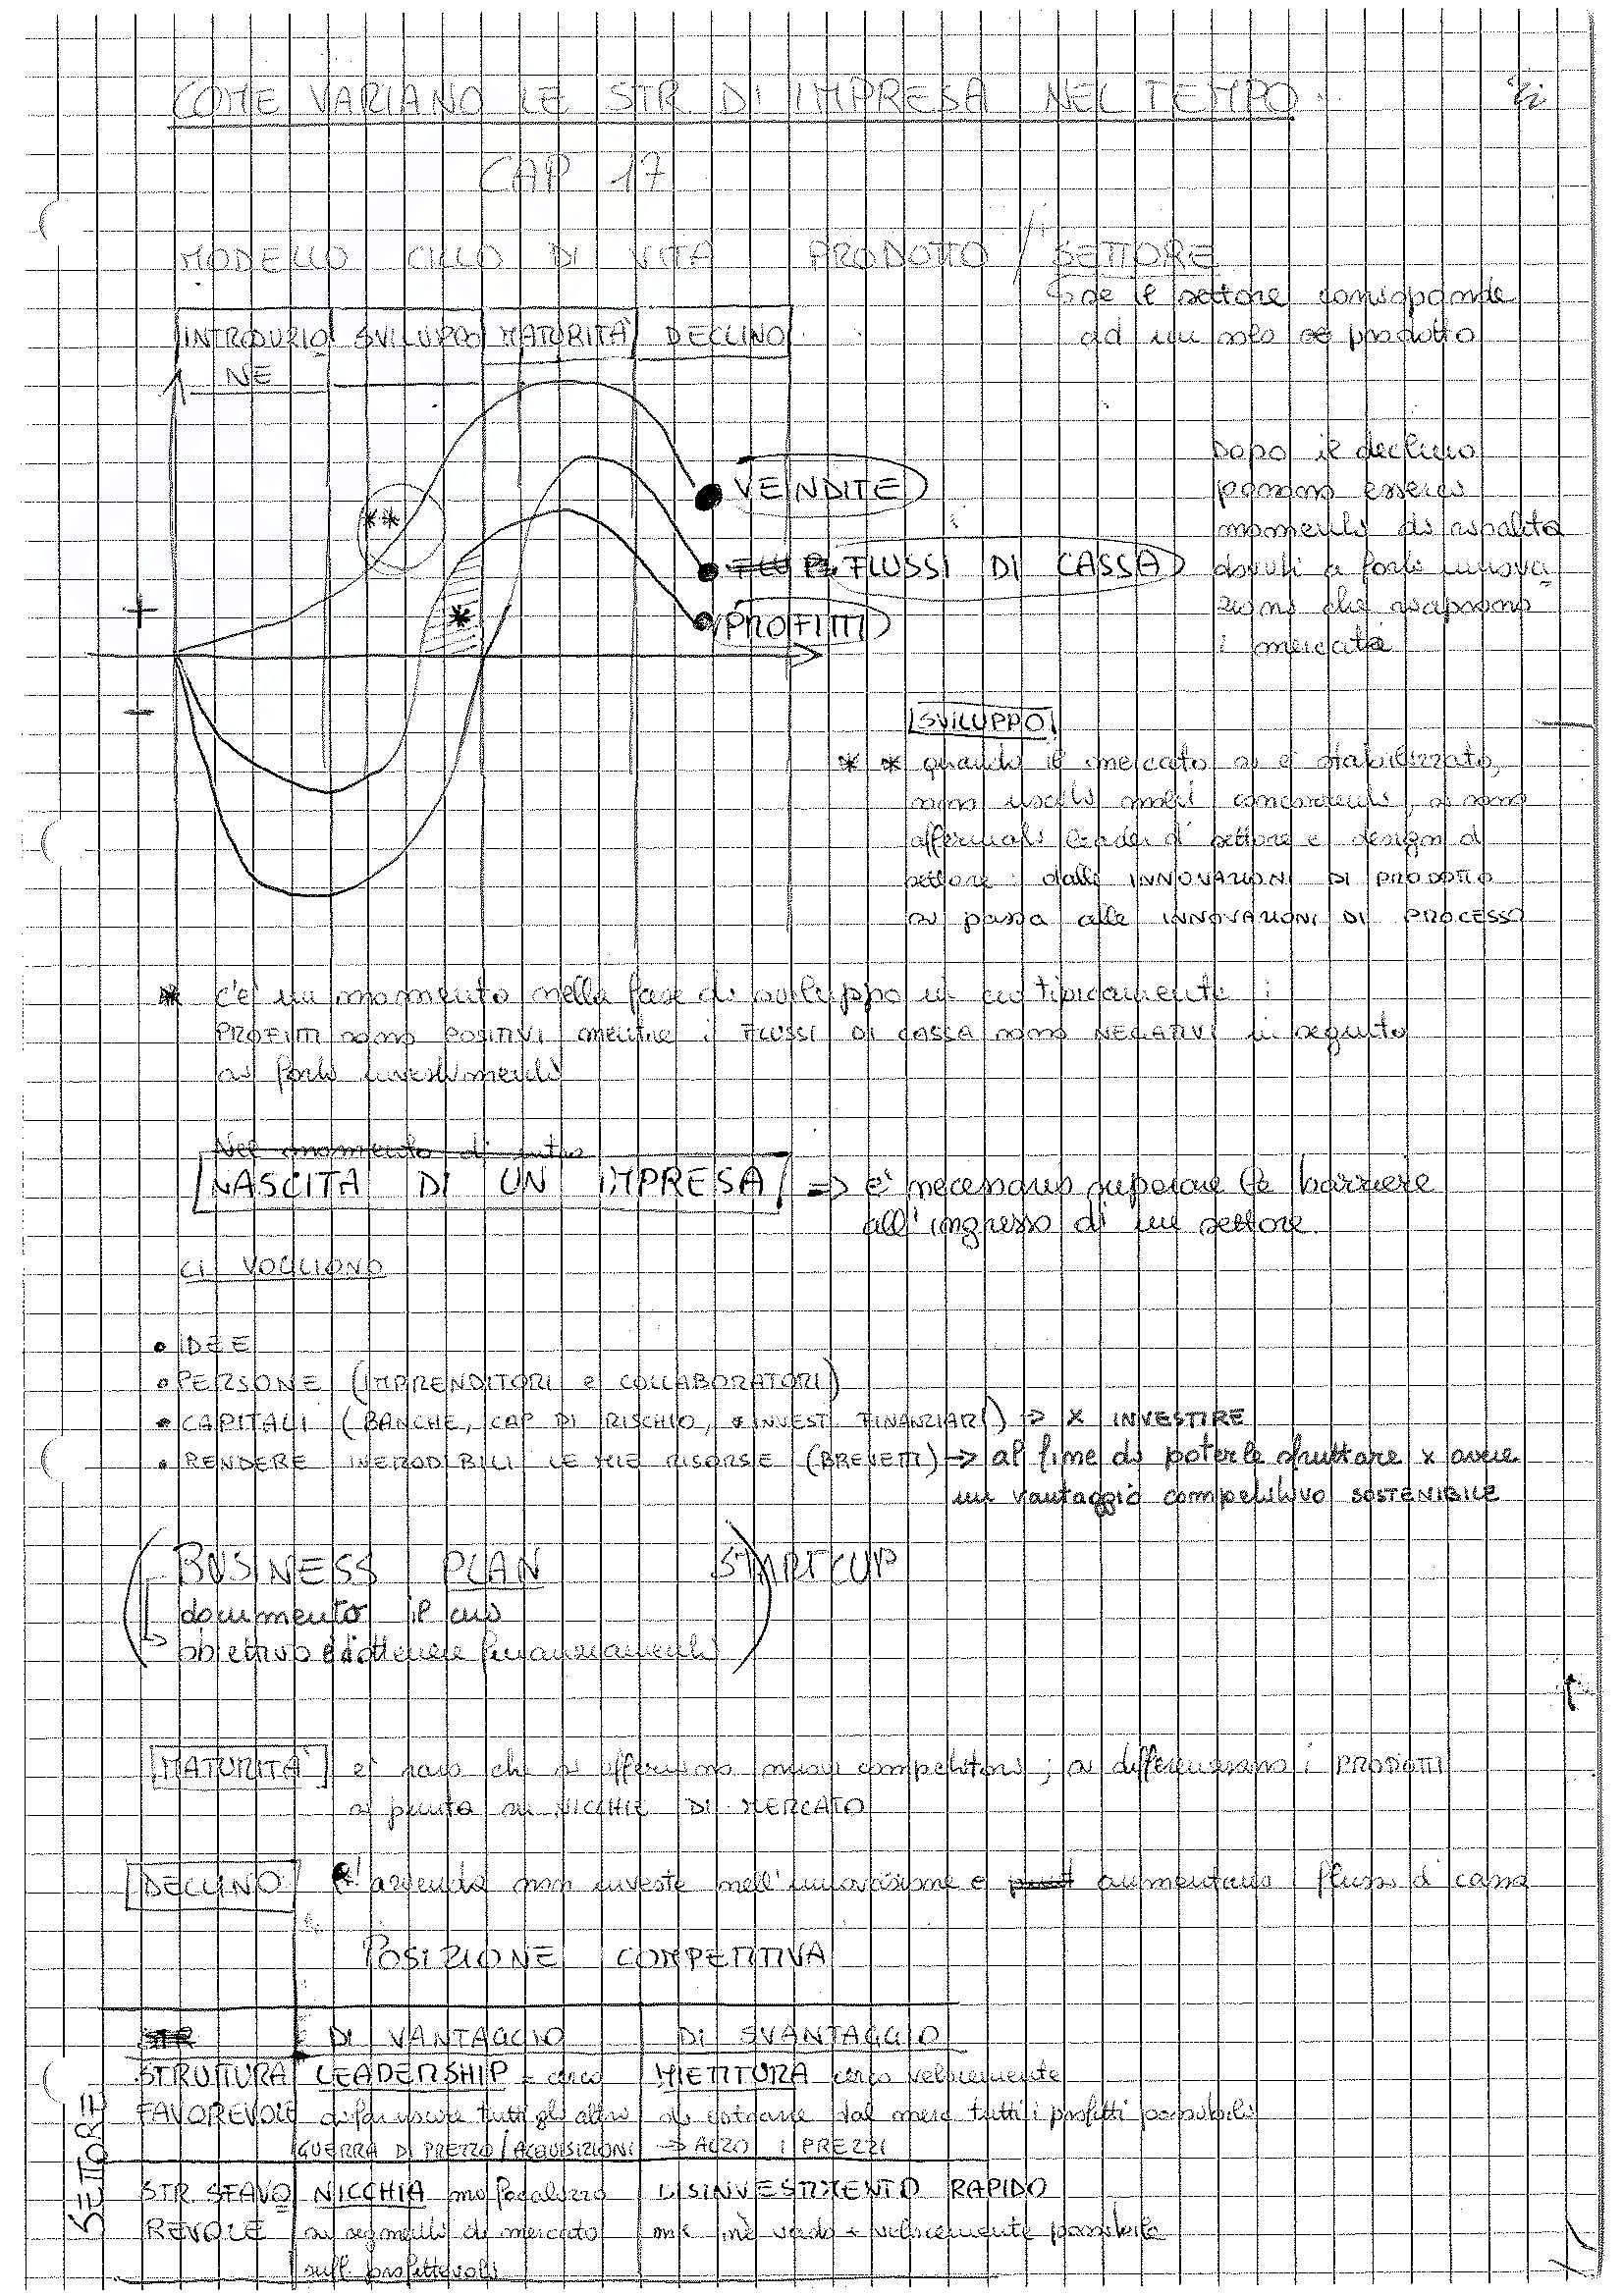 COME VARIANO LE STR DI IMPRESA NEL TEMPO
CAP 17
MODELLO CICLO DI VITA PRODOTTO / SETTORE
se il settore corrisponde
ad un solo prodotto
INTRODUZIO SVILUPPO MATURITÀ DECLINO
NE
Dopo il declino
possono esserci
momenti di risalita
dovuti a forti innova
zioni che riaprono
i mercati
**
VENDITE
FLUSSI DI CASSA
PROFITTI
*
+
-
SVILUPPO
** quando il mercato si è stabilizzato,
sono usciti molti concorrenti, si sono
affermati leader di settore e design di
settore: dalle INNOVAZIONI DI PRODOTTO
si passa alle INNOVAZIONI DI PROCESSO
* c'è un momento nella fase di sviluppo in cui tipicamente:
PROFITTI sono POSITIVI mentre i FLUSSI DI CASSA sono NEGATIVI in seguito
ai forti investimenti
Nel momento di
NASCITA DI UN IMPRESA => è necessario superare le barriere
all'ingresso di un settore.
CI VOGLIONO
• IDEE
• PERSONE (IMPRENDITORI e COLLABORATORI)
• CAPITALI (BANCHE, CAP DI RISCHIO, INVEST. FINANZIARI) => X INVESTIRE
• RENDERE INERODIBILI LE MIE RISORSE (BREVETTI) -> al fine di poterle sfruttare x avere
un vantaggio competitivo SOSTENIBILE
BUSINESS PLAN START CUP
documento il cui
obiettivo è ottenere finanziamenti
MATURITÀ è raro che si affermino nuovi competitori; si differenziano i PRODOTTI
si punta su NICCHIE DI MERCATO
DECLINO l'azienda non investe nell'innovazione e aumentano i flussi di cassa
POSIZIONE COMPETITIVA
STR DI VANTAGGIO DI SVANTAGGIO
SETTORE
STRUTTURA LEADERSHIP - cerco MIETITURA cerco velocemente
FAVOREVOLE di far uscire tutti gli altri di estrarre dal merc tutti i profitti possibili
GUERRA DI PREZZO / ACQUISIZIONI -> ALZO I PREZZI
STR SFAVO NICCHIA mi focalizzo DISINVESTIMENTO RAPIDO
REVOLE su segmenti di mercato me ne vado + velocemente possibile
suff. profittevoli